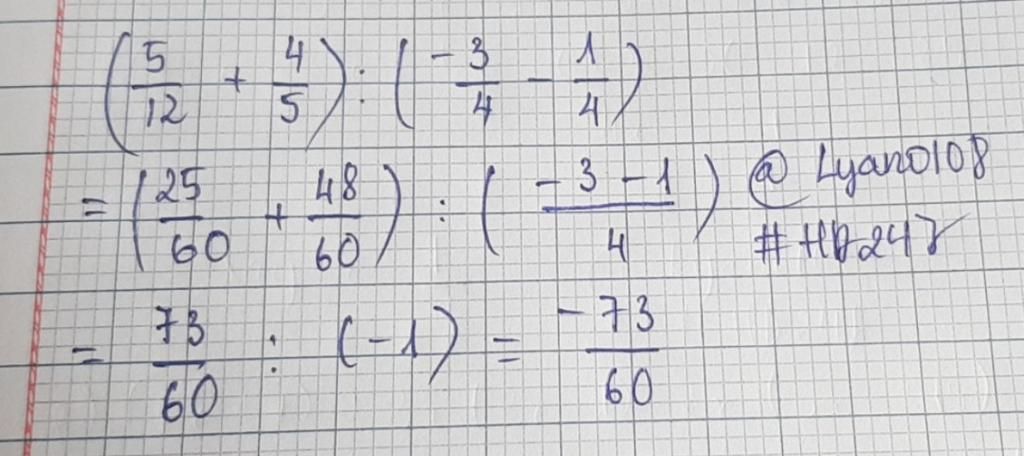 (5/12 + 4/5) : (-3/4 - 1/4)
= (25/60 + 48/60) : (-3-1/4) @Lyan0108
= 73/60 : (-1) = -73/60